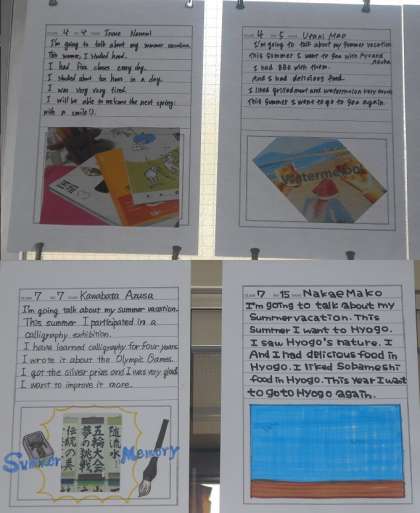 4 4 Inoue Nanami
I'm going to talk about my summer vacation.
This summer, I studied hard.
I had five classes every day.
I studied about ten hours in a day.
I was very very tired.
I will be able to welcome the next spring
with a smile☺.
4 5 Uemi Mao
I'm going to talk about my summer vacation
This summer I want to sea with
I had BBQ with them.
And I had delicious food.
I liked grilled meat and watermelon very much.
This summer I want go to sea again.
Watermelon
7 7 Kawabata Azusa
I'm going talk about my summer vacation.
This summer I participated in a
calligraphy exhibition.
I have learned calligraphy for four years.
I wrote it about the Olympic Games.
I got the silver prize and I was very glad.
I want to improve it more.
Summer Memory
随流水
五輪大会
夢の挑戦
伝統の美
7 15 Nakae Mako
I'm going to talk about my
Summer vacation. This
Summer I want to Hyogo.
I saw Hyogo's nature. I
And I had delicious food in
Hyogo. I liked Sobameshi
food in Hyogo. This year I want
to go to Hyogo again.